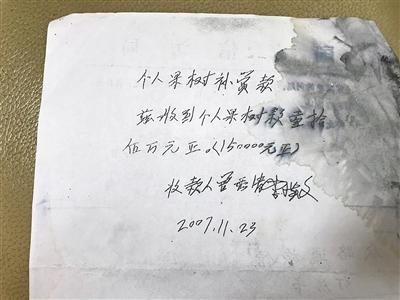 个人果树补赏款
兹收到个人果树款壹拾
伍万元正。(150000元正)
收款人
2007.11.23